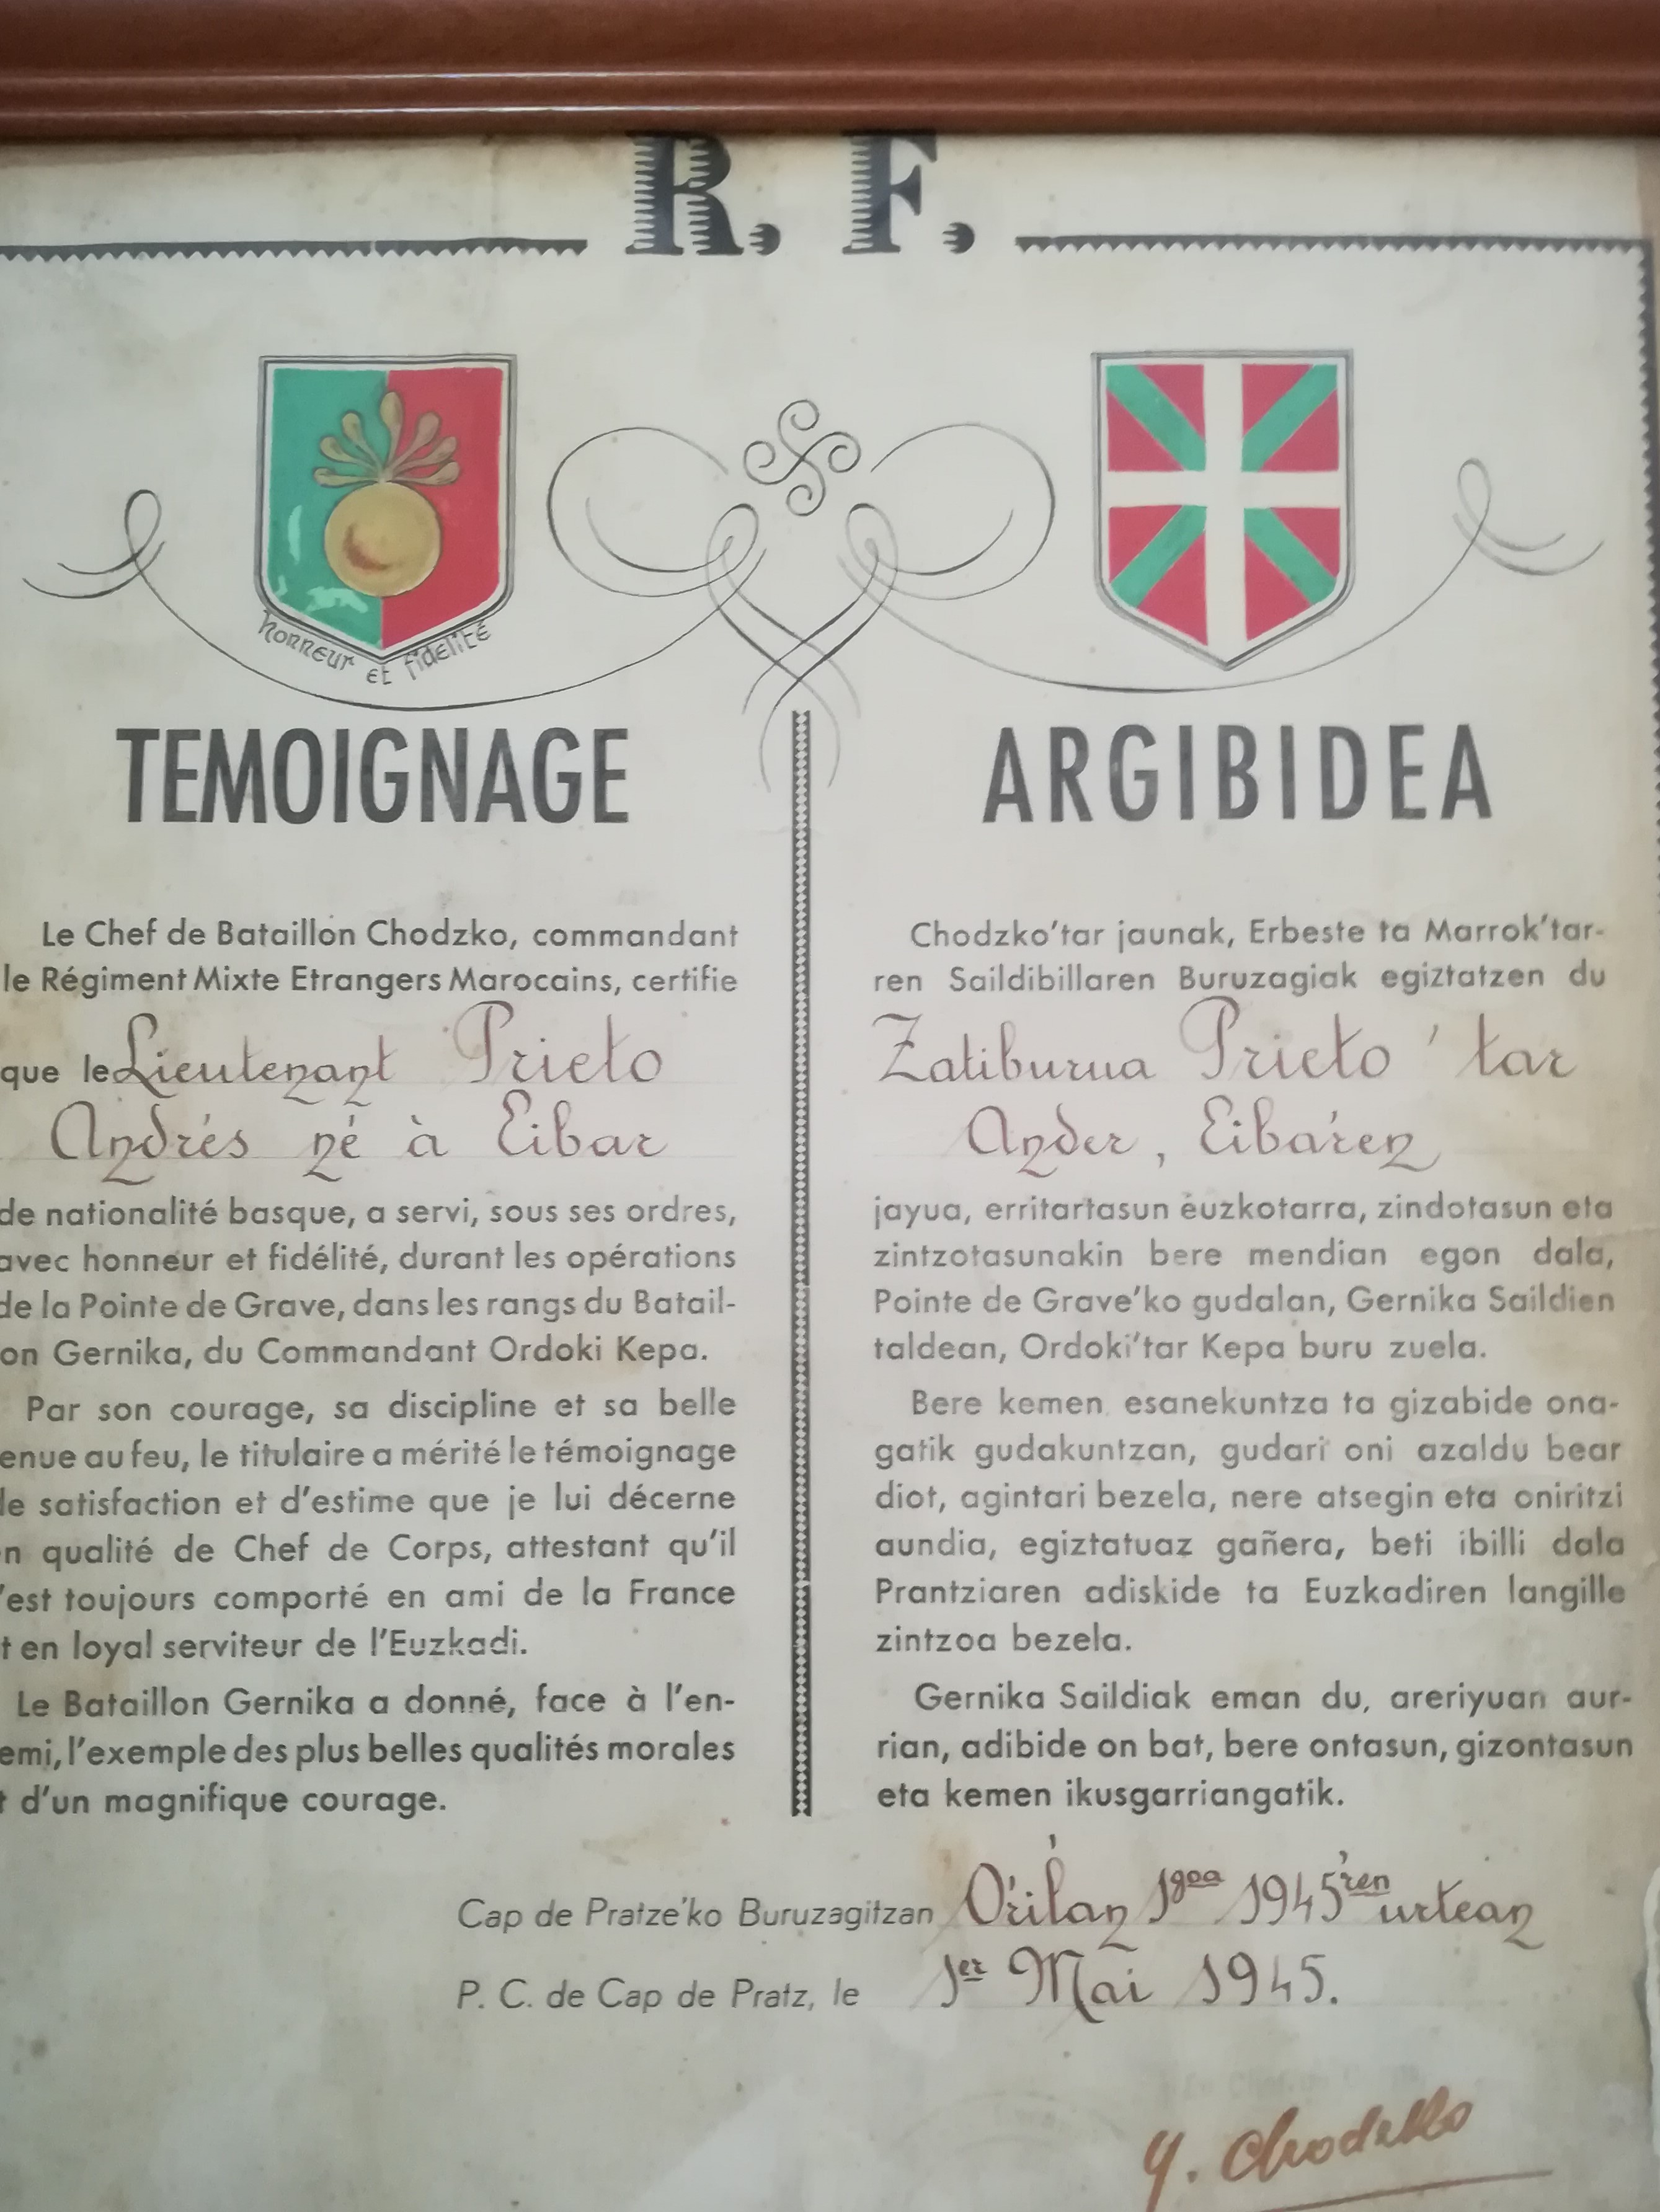 R. F.
honneur et fidelité
TEMOIGNAGE
Le Chef de Bataillon Chodzko, commandant
le Régiment Mixte Etrangers Marocains, certifie
que le Lieutenant Prieto
Andrés né à Eibar
de nationalité basque, a servi, sous ses ordres,
avec honneur et fidélité, durant les opérations
de la Pointe de Grave, dans les rangs du Batail-
on Gernika, du Commandant Ordoki Kepa.
Par son courage, sa discipline et sa belle
enue au feu, le titulaire a mérité le témoignage
de satisfaction et d'estime que je lui décerne
n qualité de Chef de Corps, attestant qu'il
'est toujours comporté en ami de la France
t en loyal serviteur de l'Euzkadi.
Le Bataillon Gernika a donné, face à l'en-
emi, l'exemple des plus belles qualités morales
t d'un magnifique courage.
ARGIBIDEA
Chodzko'tar jaunak, Erbeste ta Marrok'tar-
ren Saildibillaren Buruzagiak egiztatzen du
Zatiburua Prieto'tar
Ander, Eibáren
jayua, erritartasun éuzkotarra, zindotasun eta
zintzotasunakin bere mendian egon dala,
Pointe de Grave'ko gudalan, Gernika Saildien
taldean, Ordoki'tar Kepa buru zuela.
Bere kemen esanekuntza ta gizabide ona-
gatik gudakuntzan, gudari oni azaldu bear
diot, agintari bezela, nere atsegin eta oniritzi
aundia, egiztatuaz gañera, beti ibilli dala
Prantziaren adiskide ta Euzkadiren langille
zintzoa bezela.
Gernika Saildiak eman du, areriyuan aur-
rian, adibide on bat, bere ontasun, gizontasun
eta kemen ikusgarriangatik.
Cap de Pratze'ko Buruzagitzan Órilan 1goa 1945'ren urtean
P. C. de Cap de Pratz, le 1er Mai 1945.
Chodzko